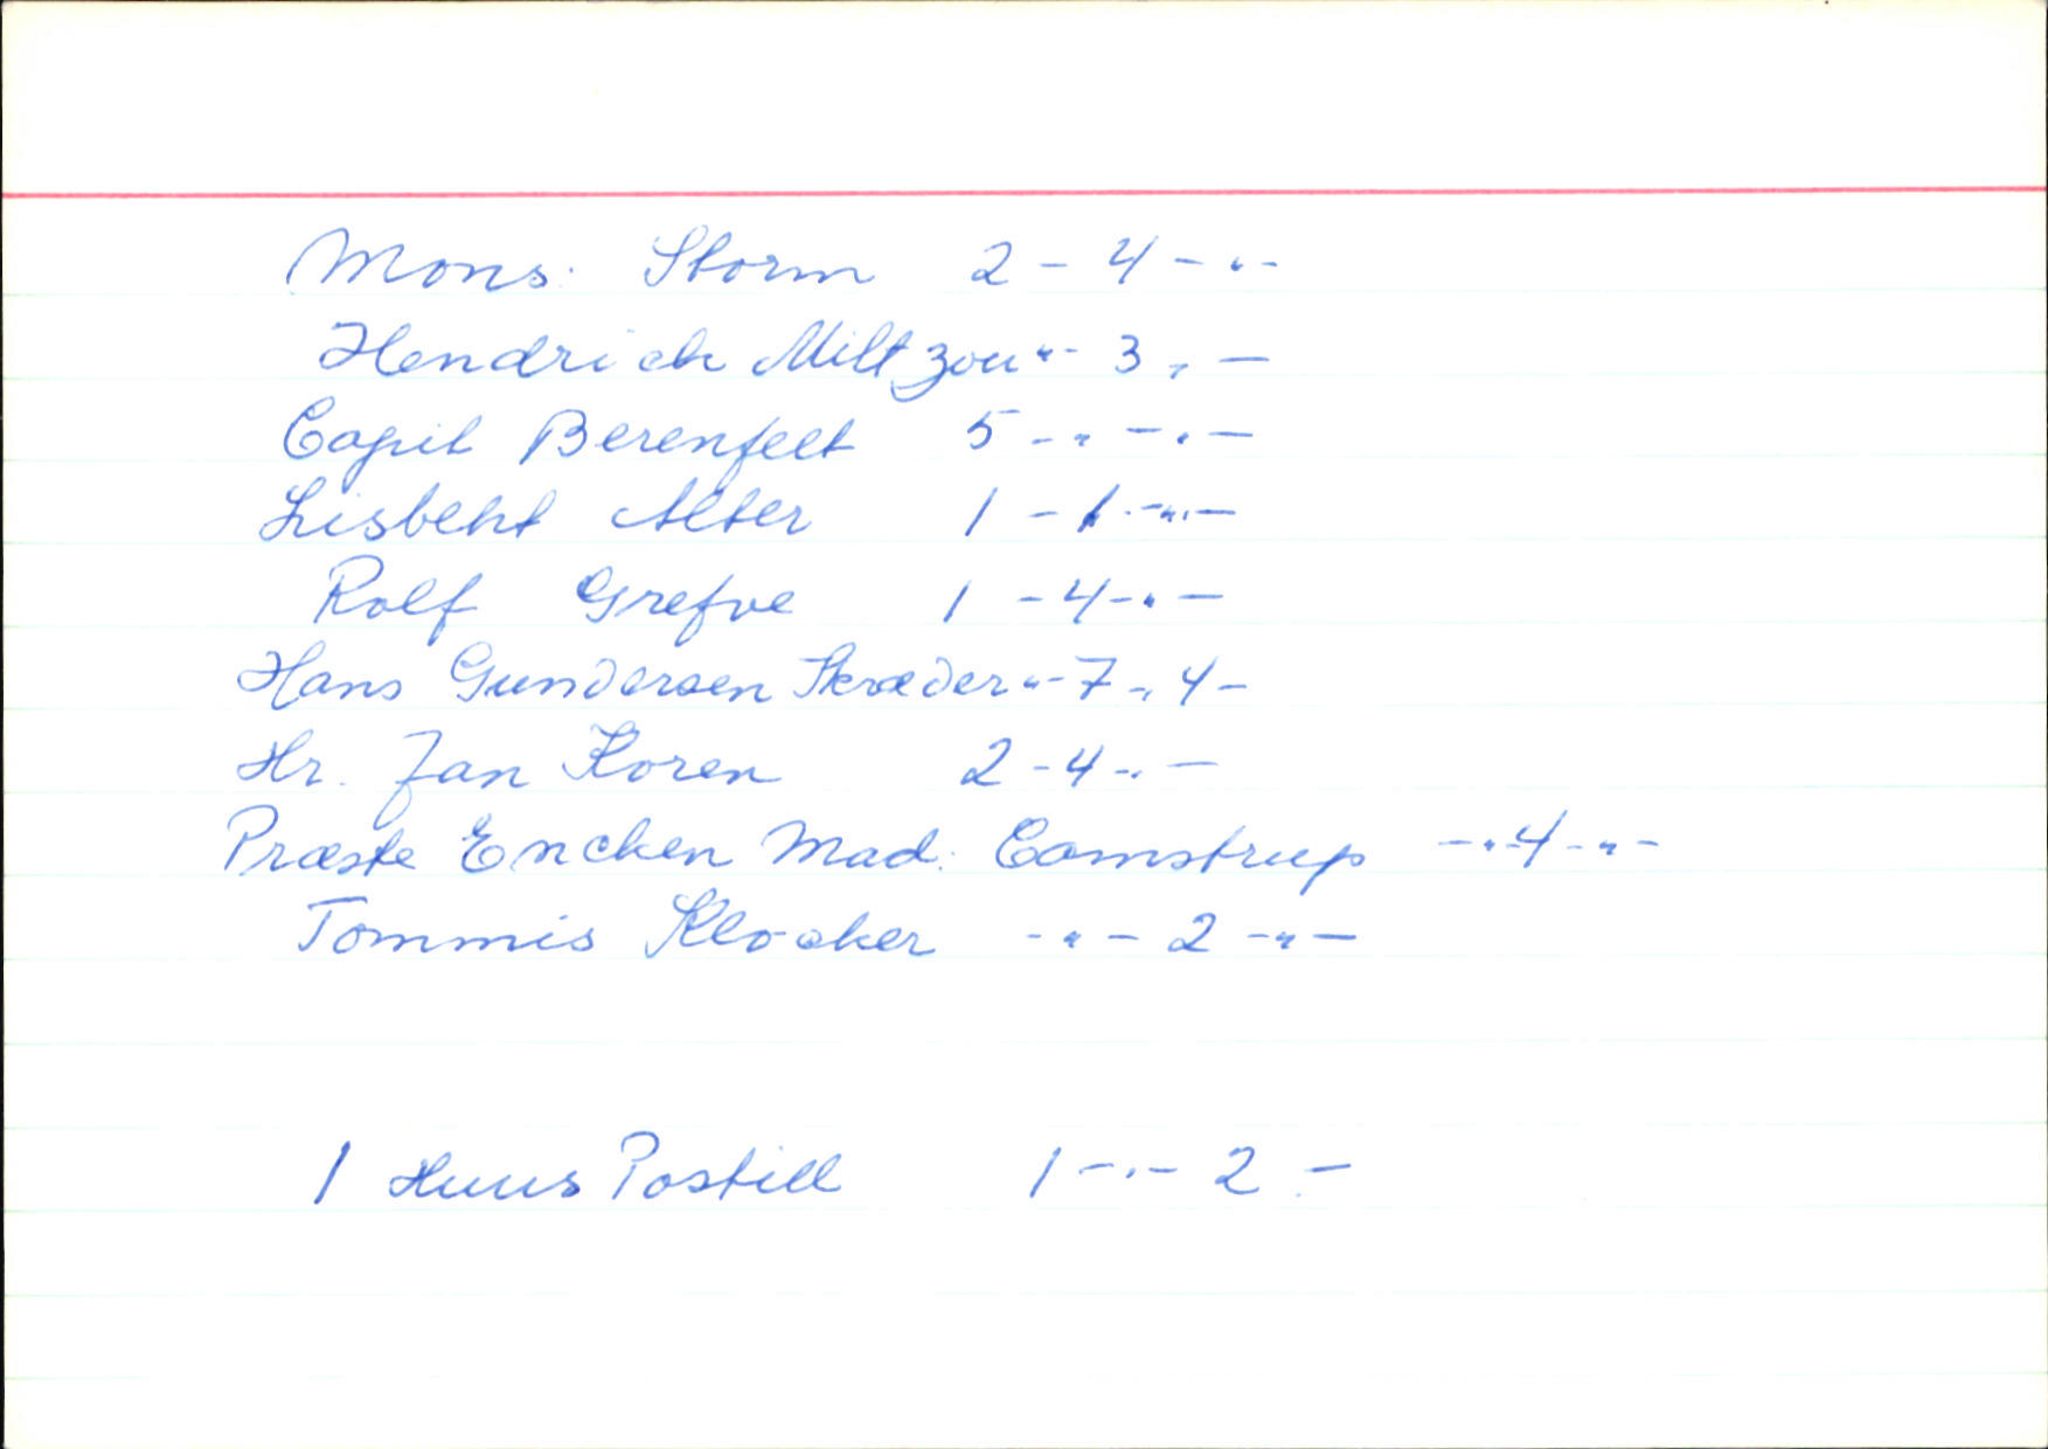 Mons. Storm 2 - 4 - " -
Hendrich Miltzou " - 3 " -
Capit Berenfelt 5 - " - " -
Lisbeht Alter 1 - 1 - " -
Rolf Grefve 1 - 4 - " -
Hans Gundersen Skræder " - 7 - " 4 -
Hr. Jan Koren 2 - 4 - " -
Præste Encken Mad. Comstrup - " - 4 - " -
Tommis Klocker - " - 2 - " -
1 Huus Postill 1 - " - 2 -